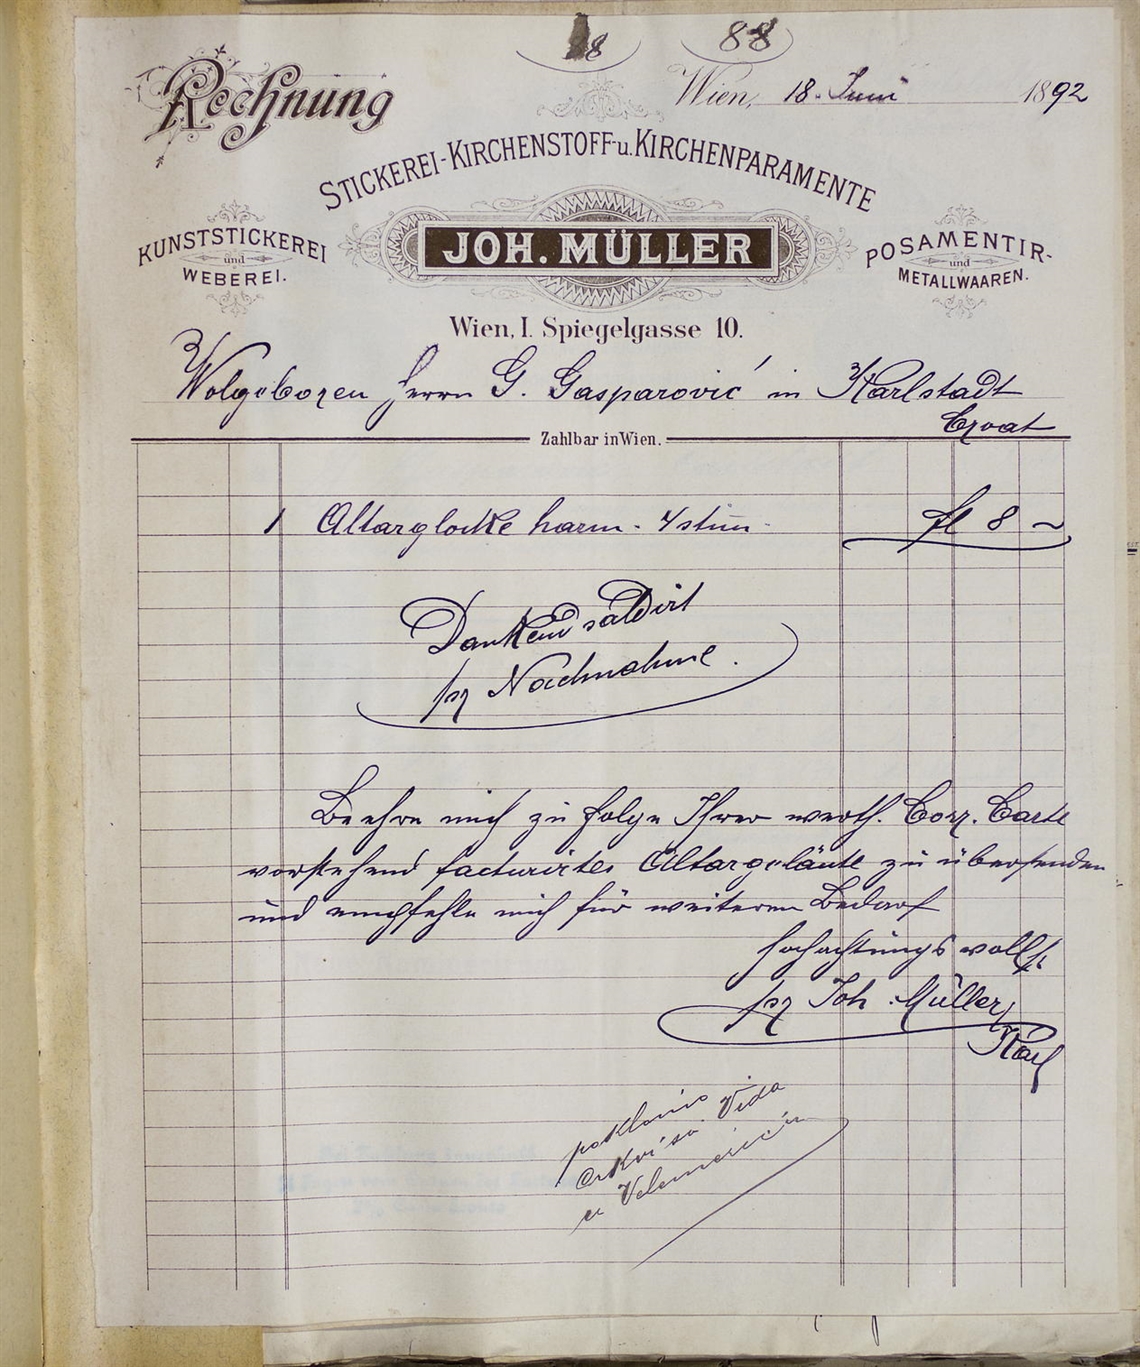 88
Rechnung
Wien, 18. Juni 1892
STICKEREI-KIRCHENSTOFF- u. KIRCHENPARAMENTE
KUNSTSTICKEREI
und
WEBEREI.
JOH. MÜLLER
POSAMENTIR-
und
METALLWAAREN.
Wien, I. Spiegelgasse 10.
Wolgeboren Herrn G. Gasparović in Karlstadt
Croat
Zahlbar in Wien.
1 Altarglocke harm. 4 stim. fl 8 ~
Dankend saldirt
pr Nachnahme.
Beehre mich zu folge Ihrer werth. Corr. Carte
vorstehend facturirtes Altargeläute zu übersenden
und empfehle mich für weiteren Bedarf
hochachtungsvollst
pr Joh. Müller
poklonio
crkvi sv. Vida
u